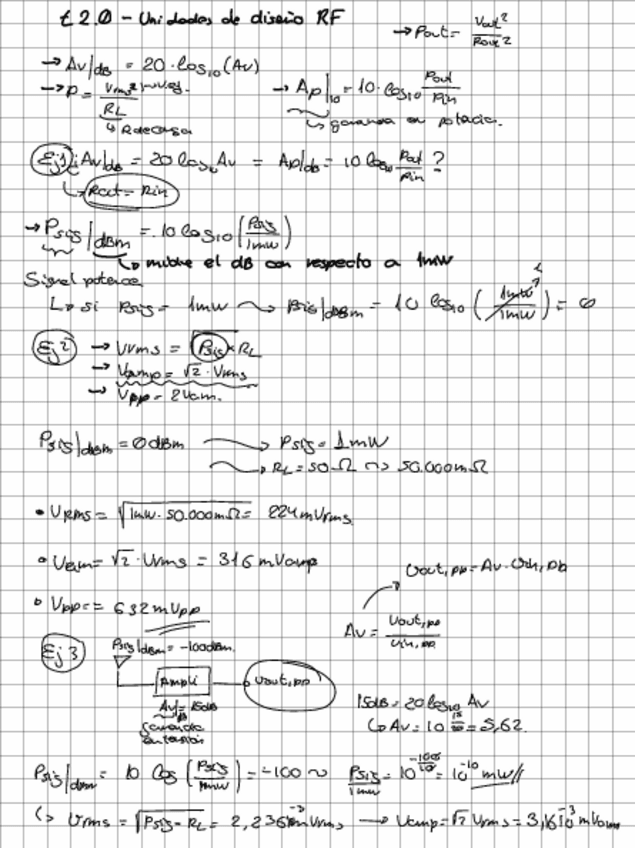 t 2.0 - Unidades de diseño RF
→ Pout = Vout² / Rout 2
→ Av|dB = 20·log10 (Av)
→ P = Vrms² / RL
→ Ap|10 = 10·log10 Pout / Pin
↳ ganancia en potencia.
Ej1 Av|dB = 20 log10 Av = Ap|dB = 10 log10 Pout / Pin ?
↳ Rout = Rin
→ Psig|dBm = 10 log10 (Psig / 1mW)
↳ mide el dB con respecto a 1mW
Signal potence
↳ si Psig = 1mW ⇝ Psig|dBm = 10 log10 (1mW / 1mW) = 0
Ej2 → Vrms = √(Psig × RL)
→ Vamp = √2 · Vrms
→ Vpp = 2Vam.
Psig|dBm = 0 dBm → Psig = 1mW
→ RL = 50 Ω ⇝ 50.000mΩ
• VRMS = √(1mW · 50.000mΩ) = 224mVrms
• Vam = √2 · Vrms = 316 mVamp
Vout,pp = Av · Vin,pp
• Vpp = 632 mVpp
Av = Vout,pp / Vin,pp
Ej3 Psig|dBm = -100dBm.
Ampli
Vout,pp
Av = 15dB
ganancia
en tensión
15dB = 20 log10 Av
↳ Av = 10^(15/20) = 5,62
Psig|dBm = 10 log (Psig / 1mW) = -100 ⇝ Psig / 1mW = 10^(-100/10) = 10^-10 mW//
↳ Vrms = √(Psig · RL) = 2,236 mVrms → Vamp = √2 Vrms = 3,16 10^-3 mVamp